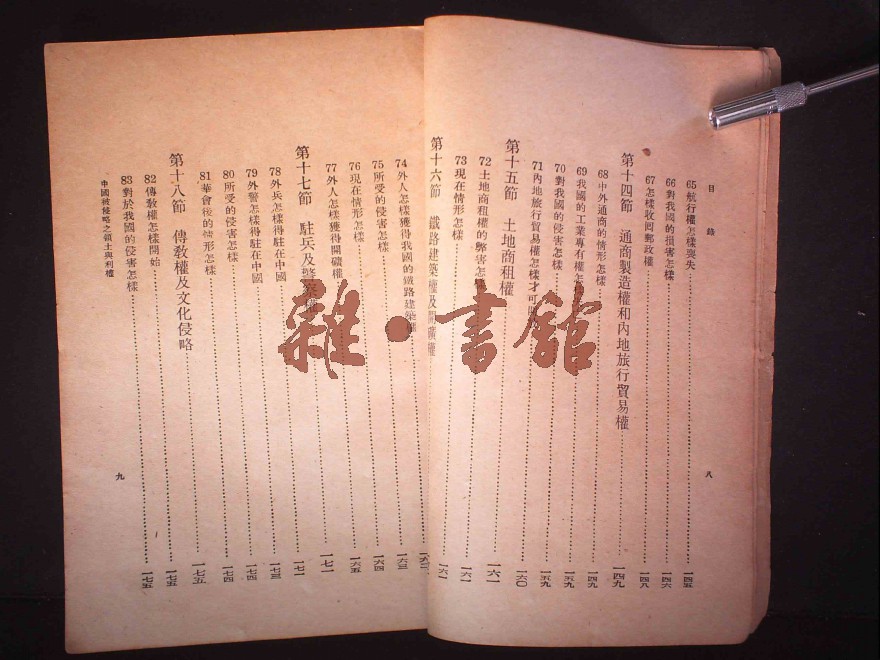 目錄
65航行權怎樣喪失……一四五
66對我國的損害怎樣……一四六
67怎樣收回郵政權……一四八
第十四節 通商製造權和內地旅行貿易權……一四九
68中外通商的情形怎樣……一四九
69我國的工業專有權怎……一五九
70對我國的侵害怎樣……一五九
71內地旅行貿易權怎樣才可……一六〇
第十五節 土地商租權……一六一
72土地商租權的弊害怎樣……一六一
73現在情形怎樣……一六一
第十六節 鐵路建築權及開礦權
八
74外人怎樣獲得我國的鐵路建築權……一六三
75所受的侵害怎樣……一六四
76現在情形怎樣……一六五
77外人怎樣獲得開礦權……一七一
第十七節 駐兵及警察權……一七一
78外兵怎樣得駐在中國……一七三
79外警怎樣得駐在中國……一七四
80所受的侵害怎樣……一七四
81華會後的情形怎樣……一七五
第十八節 傳敎權及文化侵略……一七五
82傳敎權怎樣開始……一七五
83對於我國的侵害怎樣
中國被侵略之領土與利權
九
雜·書館